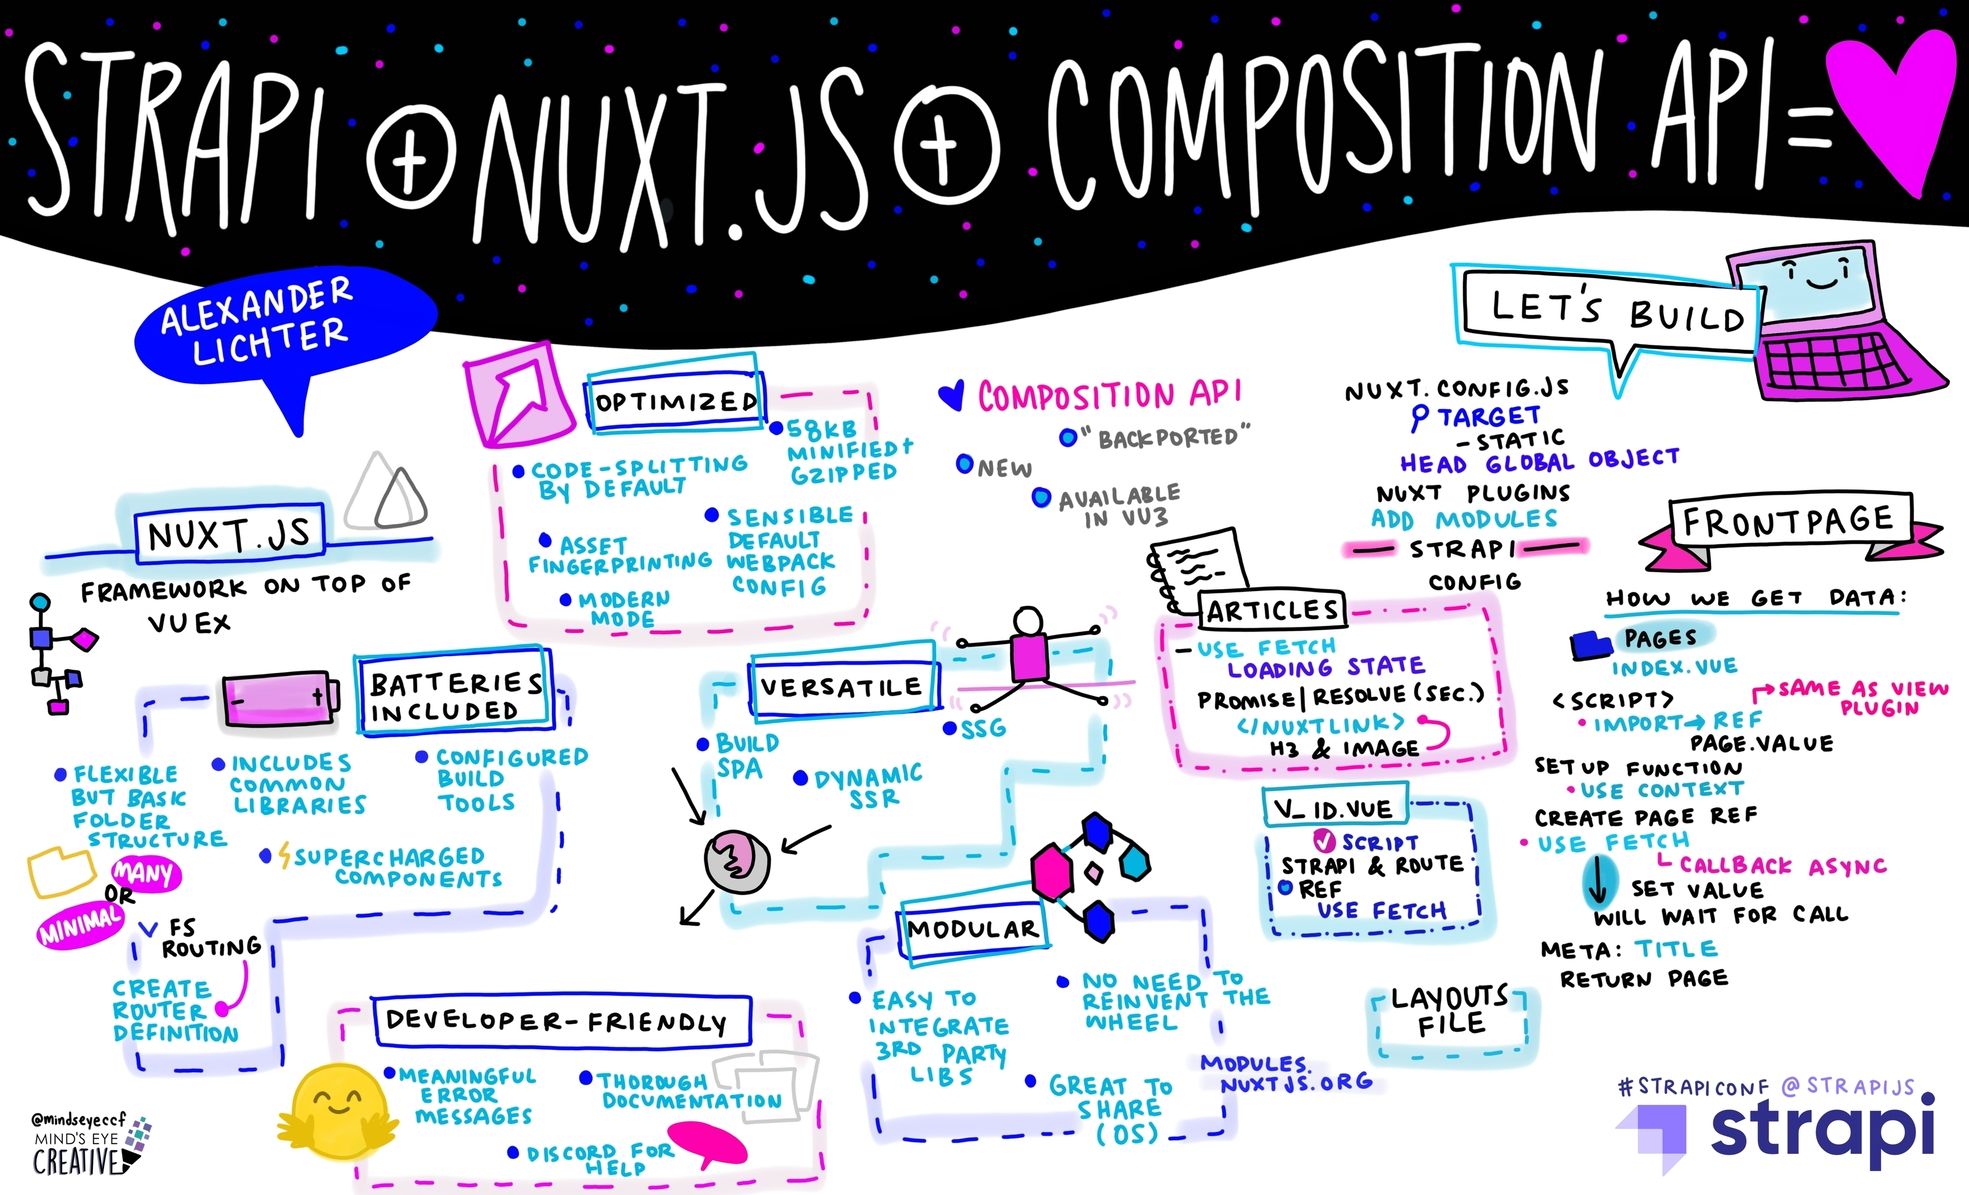 STRAPI + NUXT.JS + COMPOSITION API =
ALEXANDER
LICHTER
NUXT.JS
FRAMEWORK ON TOP OF
VUEX
OPTIMIZED
58KB
MINIFIED+
GZIPPED
CODE-SPLITTING
BY DEFAULT
SENSIBLE
DEFAULT
WEBPACK
CONFIG
ASSET
FINGERPRINTING
MODERN
MODE
BATTERIES
INCLUDED
FLEXIBLE
BUT BASIC
FOLDER
STRUCTURE
INCLUDES
COMMON
LIBRARIES
CONFIGURED
BUILD
TOOLS
SUPERCHARGED
COMPONENTS
MANY
OR
MINIMAL
FS
ROUTING
CREATE
ROUTER
DEFINITION
VERSATILE
SSG
BUILD
SPA
DYNAMIC
SSR
MODULAR
EASY TO
INTEGRATE
3RD PARTY
LIBS
NO NEED TO
REINVENT THE
WHEEL
GREAT TO
SHARE
(OS)
MODULES.
NUXTJS.ORG
DEVELOPER-FRIENDLY
MEANINGFUL
ERROR
MESSAGES
THOROUGH
DOCUMENTATION
DISCORD FOR
HELP
COMPOSITION API
"BACKPORTED"
NEW
AVAILABLE
IN VU3
LET'S BUILD
NUXT.CONFIG.JS
TARGET
-STATIC
HEAD GLOBAL OBJECT
NUXT PLUGINS
ADD MODULES
STRAPI
CONFIG
ARTICLES
- USE FETCH
LOADING STATE
PROMISE|RESOLVE(SEC.)
</NUXTLINK>
H3 & IMAGE
V_ID.VUE
SCRIPT
STRAPI & ROUTE
REF
USE FETCH
LAYOUTS
FILE
FRONTPAGE
HOW WE GET DATA:
PAGES
INDEX.VUE
<SCRIPT>
SAME AS VIEW
PLUGIN
IMPORT→REF
PAGE.VALUE
SETUP FUNCTION
USE CONTEXT
CREATE PAGE REF
USE FETCH
CALLBACK ASYNC
SET VALUE
WILL WAIT FOR CALL
META: TITLE
RETURN PAGE
#STRAPICONF @STRAPIJS
strapi
@mindseyeccf
MIND'S EYE
CREATIVE